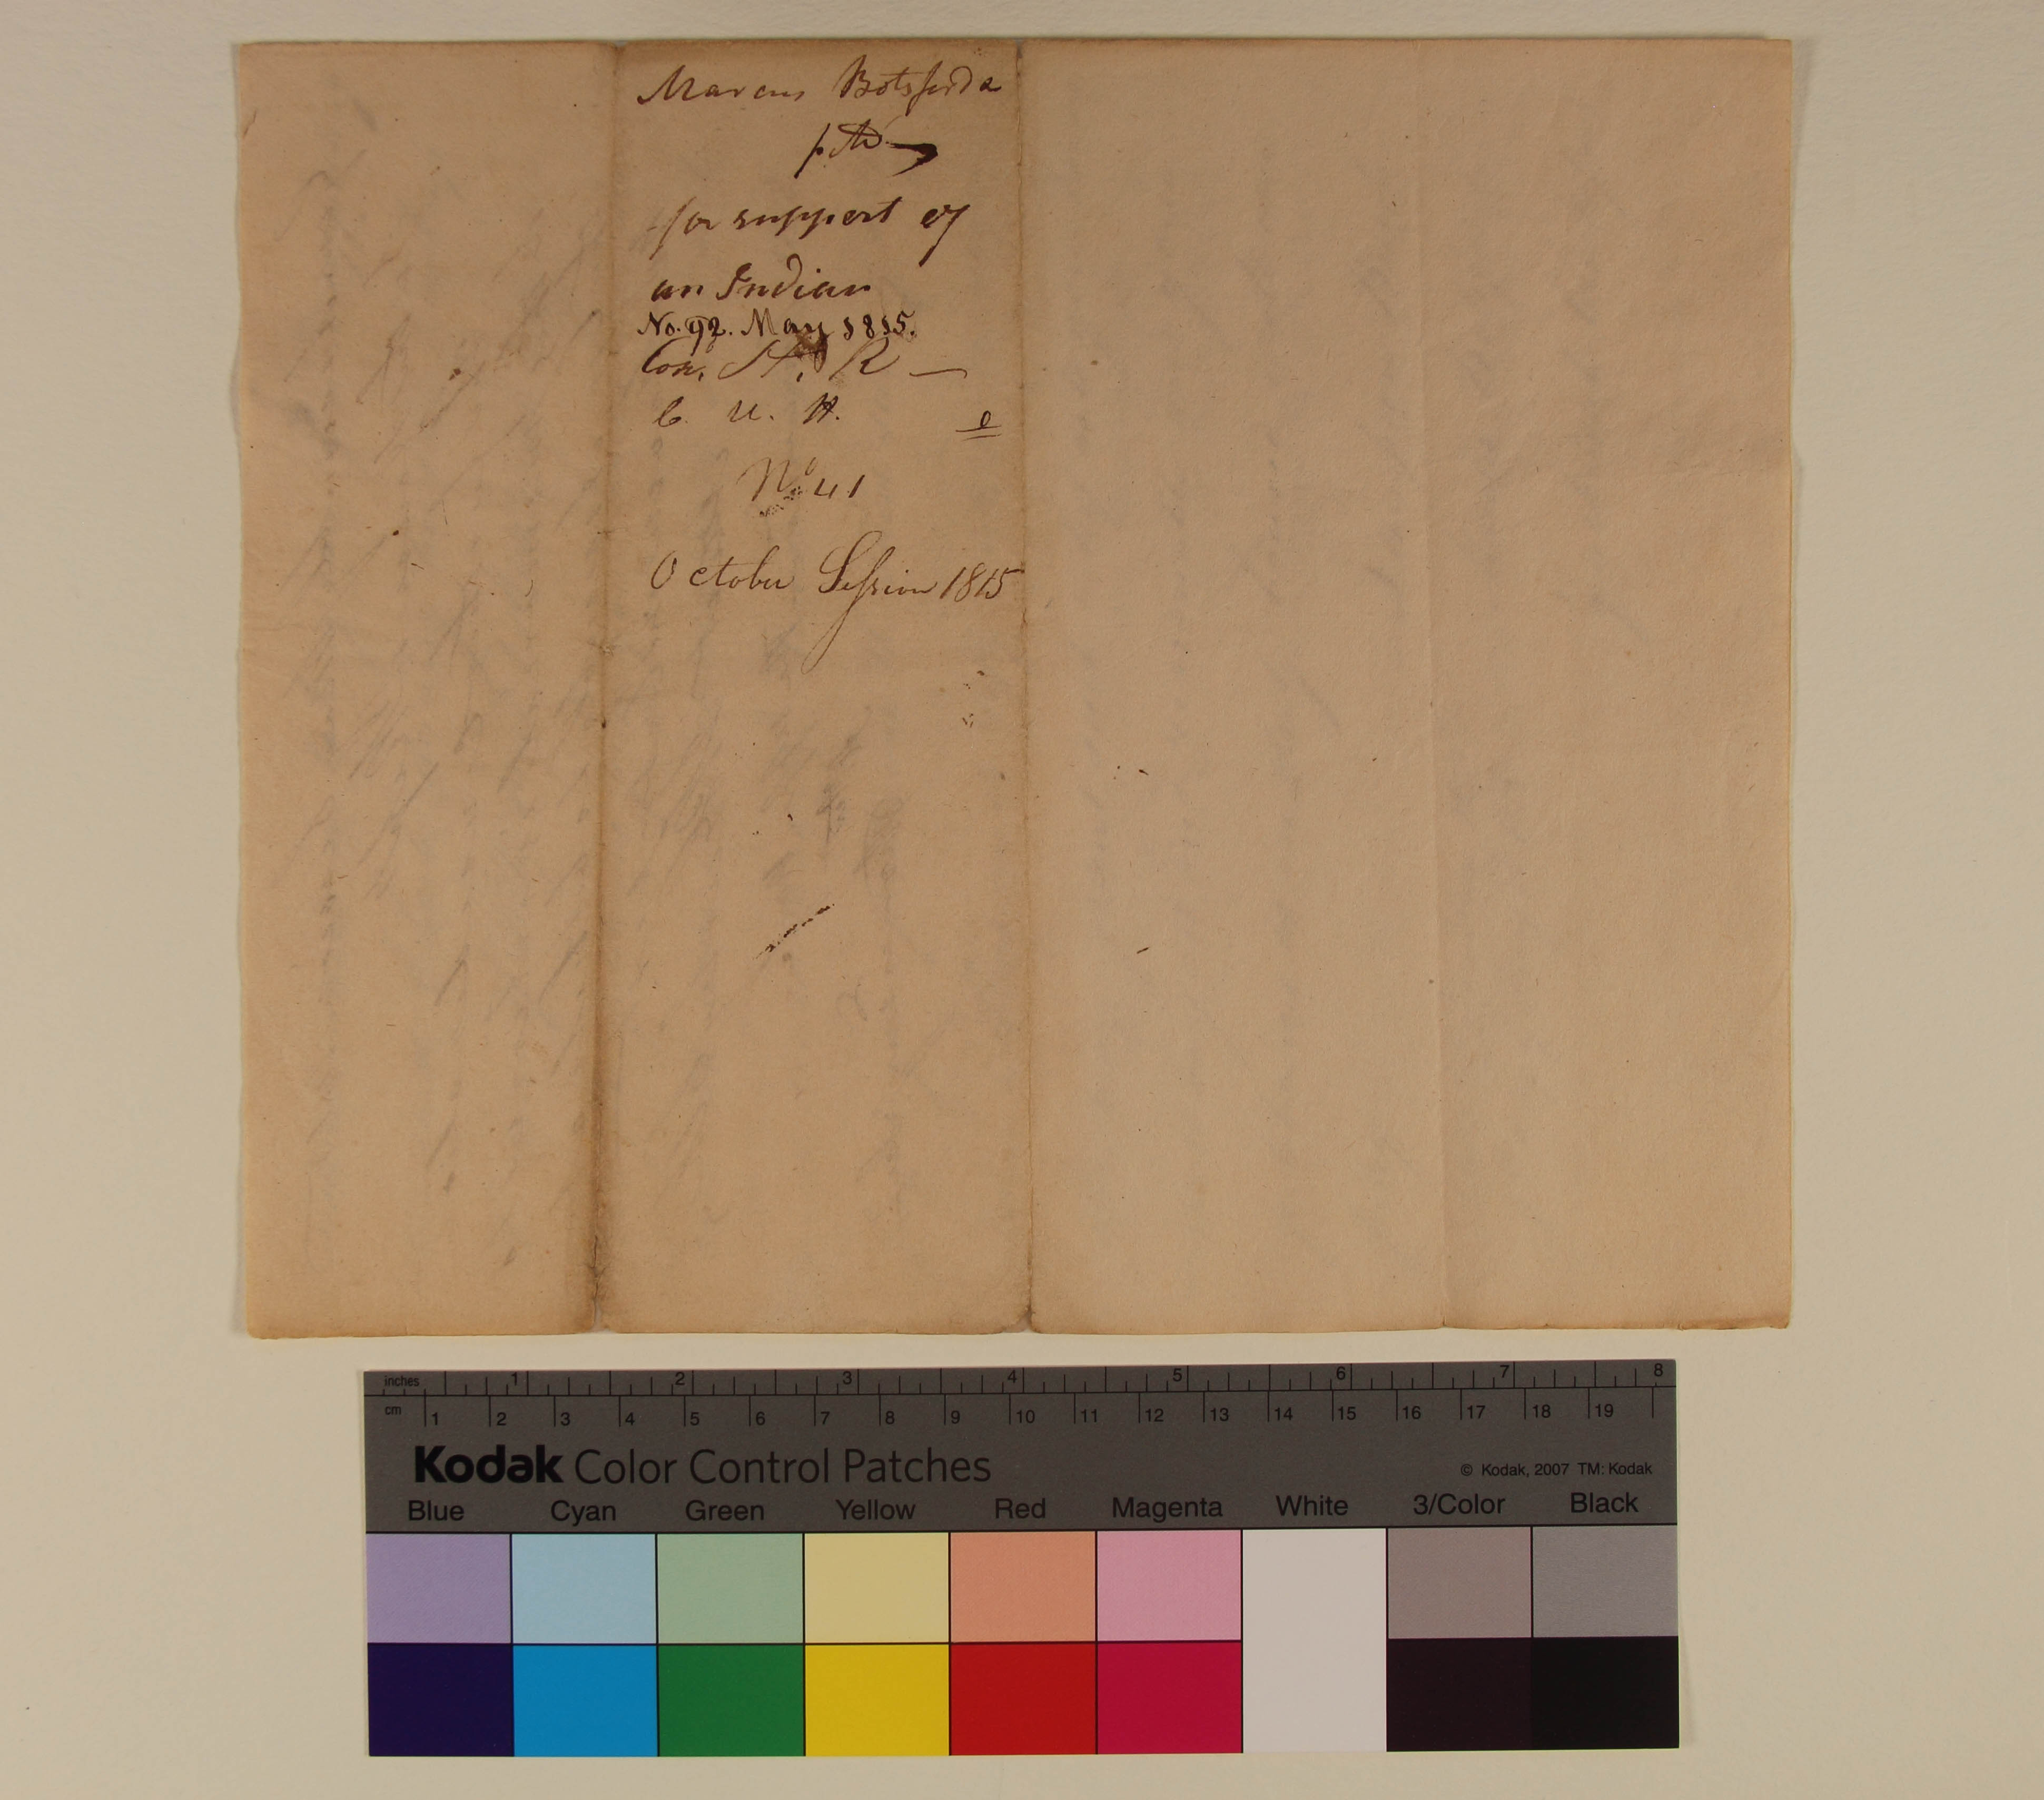 Marcus Botsford
for support of
an Indian
No. 92. May 1815.
Con. H. R —
C. U. H.
No 41
October Session 1815
inches 1 2 3 4 5 6 7 8
cm 1 2 3 4 5 6 7 8 9 10 11 12 13 14 15 16 17 18 19
Kodak Color Control Patches
© Kodak, 2007 TM: Kodak
Blue Cyan Green Yellow Red Magenta White 3/Color Black